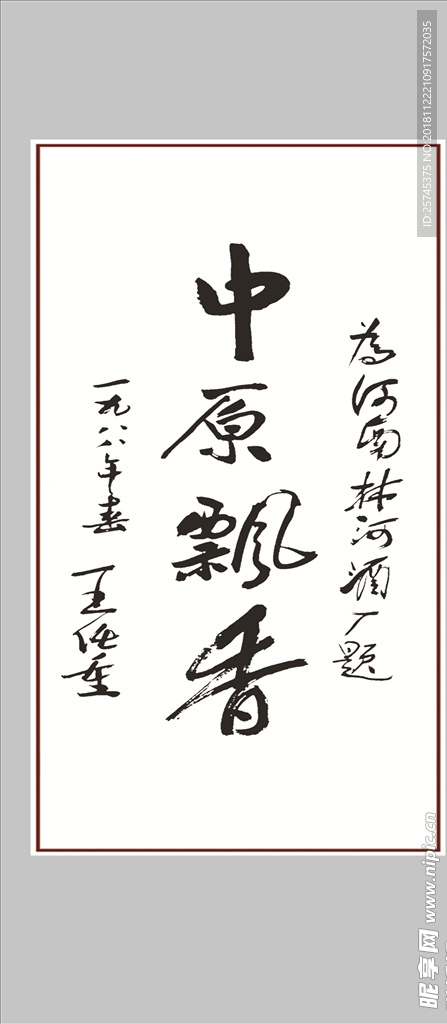 为河南林河酒厂题
中原飘香
一九八八年春
王任重
ID:25745375 NO:20181122210917572035
昵享网 www.nipic.cn